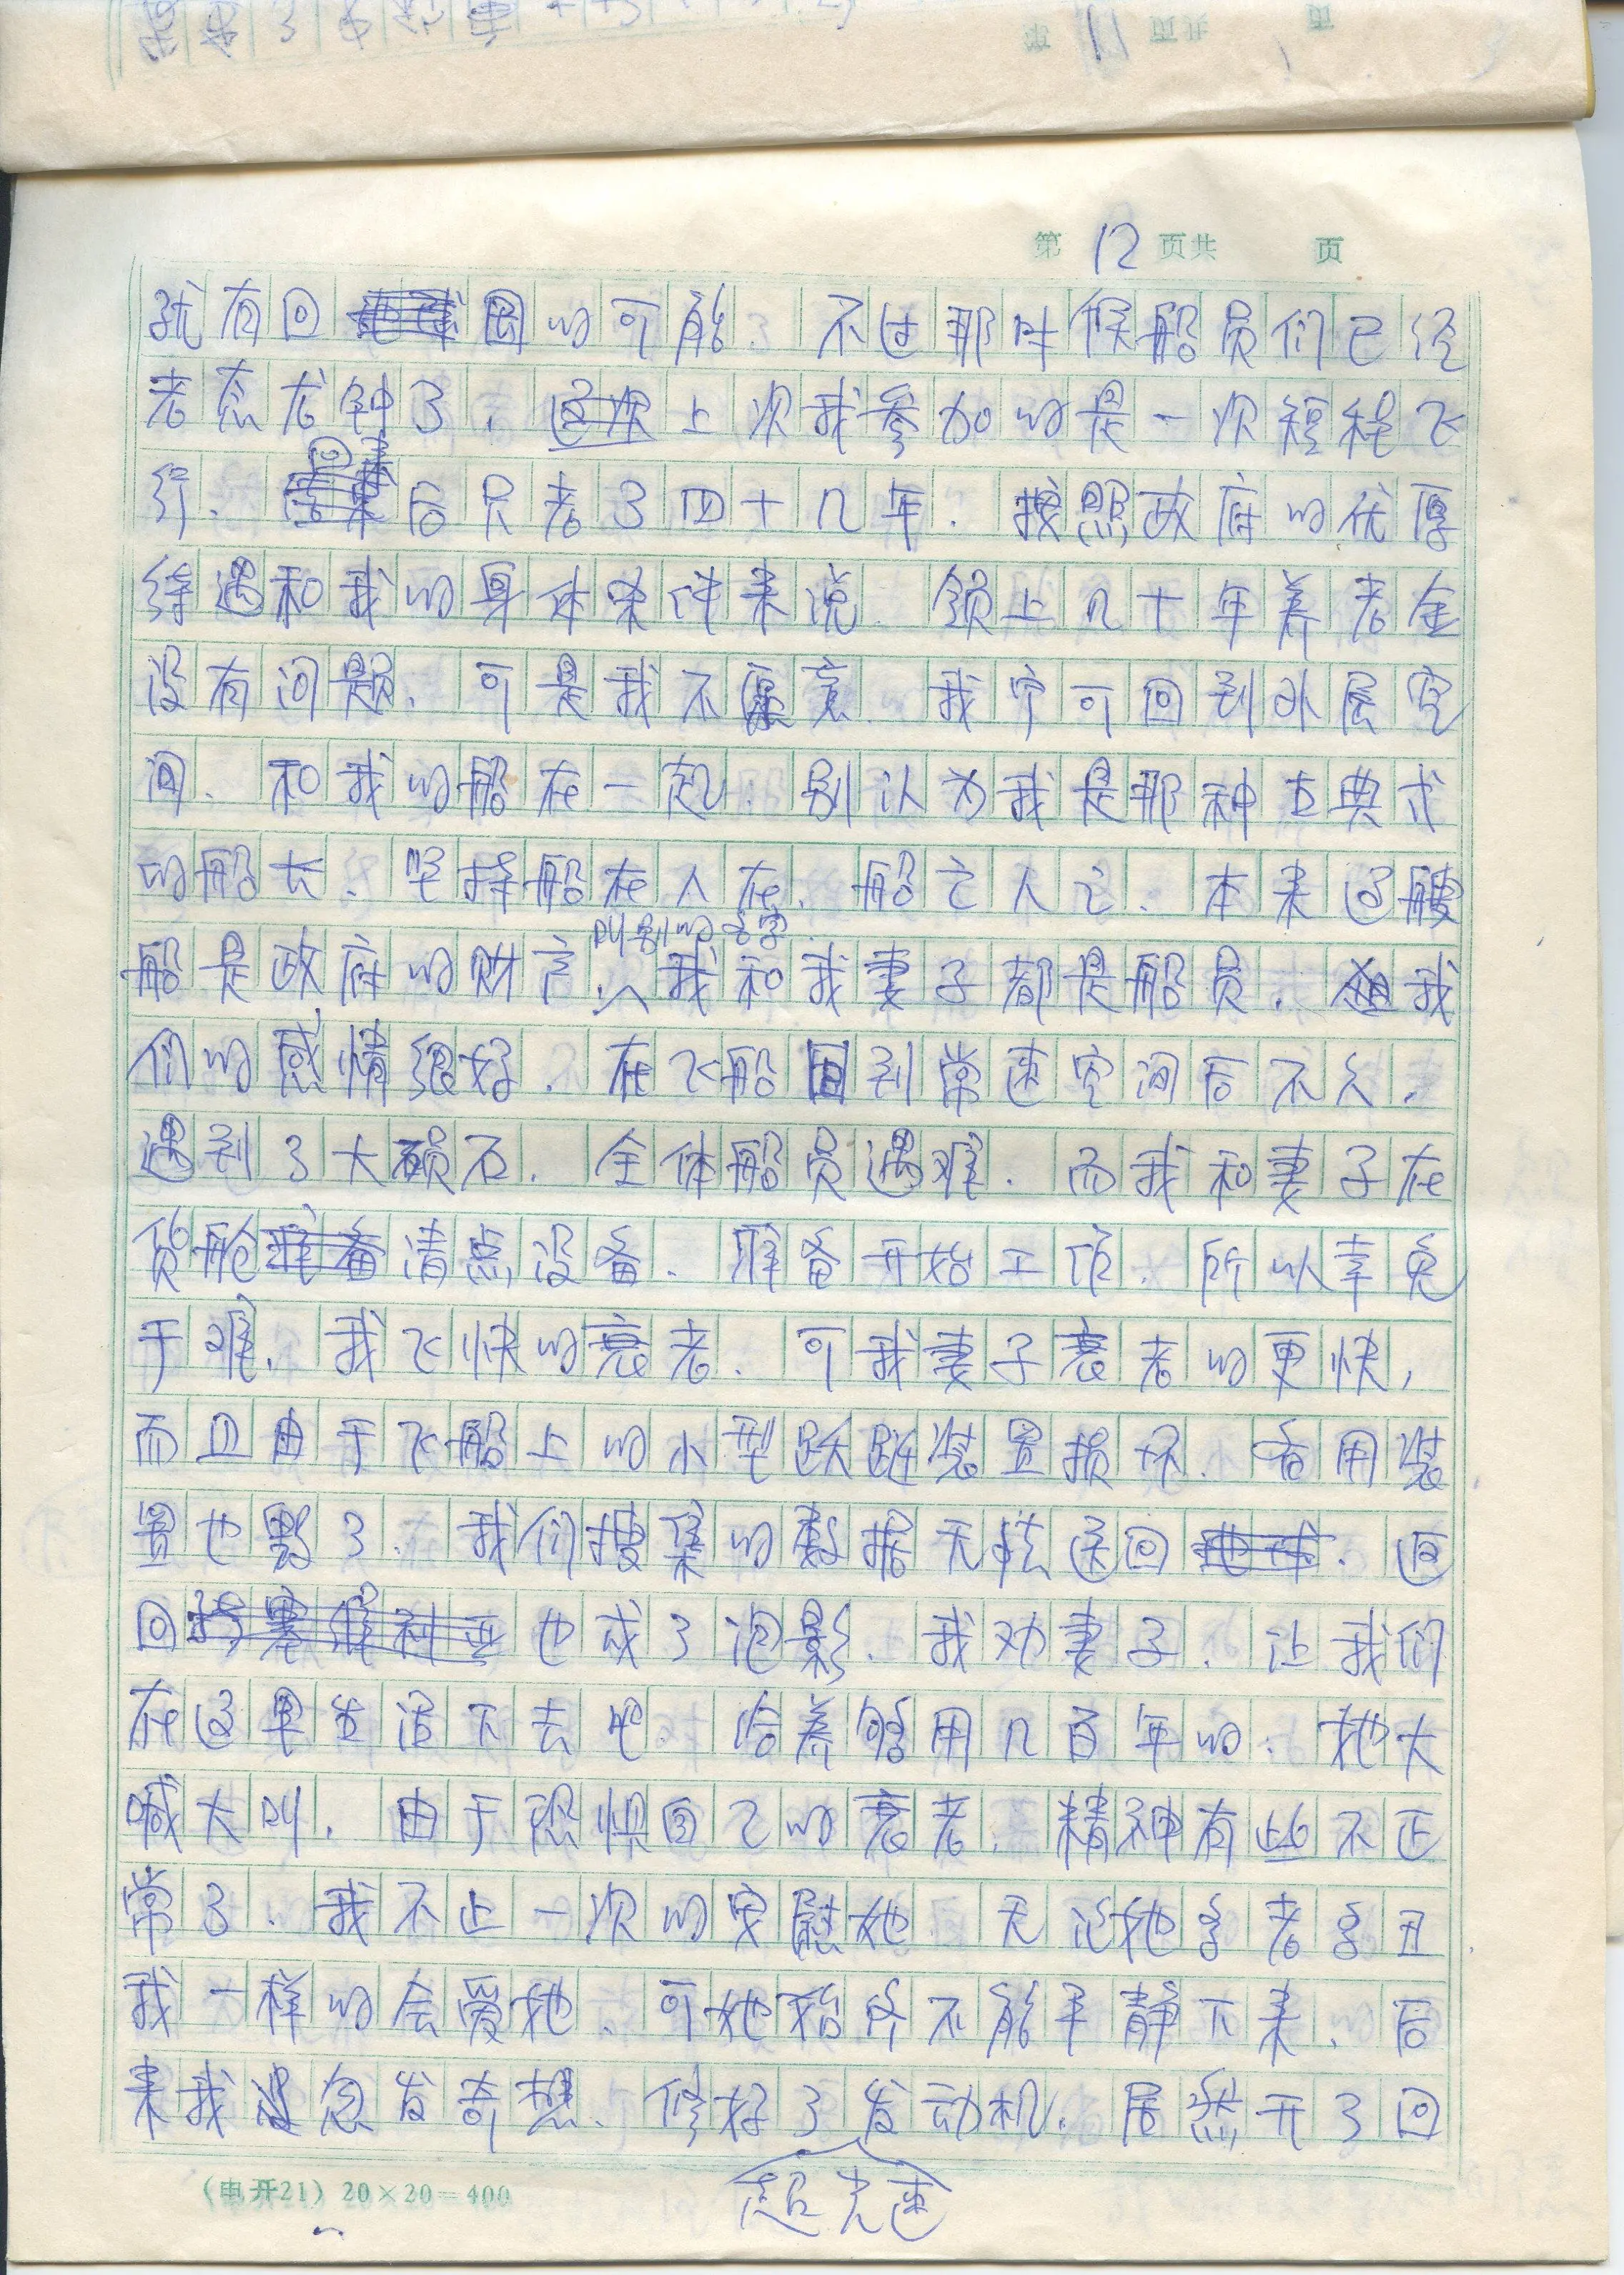 第12页共 页
就有回国的可能。不过那时候船员们已经
老态龙钟了。上次我参加的是一次短程飞
行。回来后只老了四十几年。按照政府的优厚
待遇和我的身体条件来说。领上几十年养老金
没有问题。可是我不愿意。我宁可回到外层空
间。和我的船在一起。别认为我是那种古典式
的船长。坚持船在人在。船亡人亡。本来这艘
叫别的名字。
船是政府的财产。我和我妻子都是船员。我
们的感情很好。在飞船回到常速空间后不久。
遇到了大陨石。全体船员遇难。而我和妻子在
货舱清点设备。准备开始工作。所以幸免
于难。我飞快的衰老。可我妻子衰老的更快，
而且由于飞船上的小型跃迁装置损坏。备用装
置也毁了。我们搜集的数据无法送回。返
回也成了泡影。我劝妻子。让我们
在这里生活下去吧。给养够用几百年的。她大
喊大叫。由于恐惧自己的衰老。精神有些不正
常了。我不止一次的安慰她。无论她多老多丑
我一样的会爱她。可她始终不能平静下来。后
来我忽发奇想。修好了发动机。居然开了回
超光速
(电开21) 20×20=400